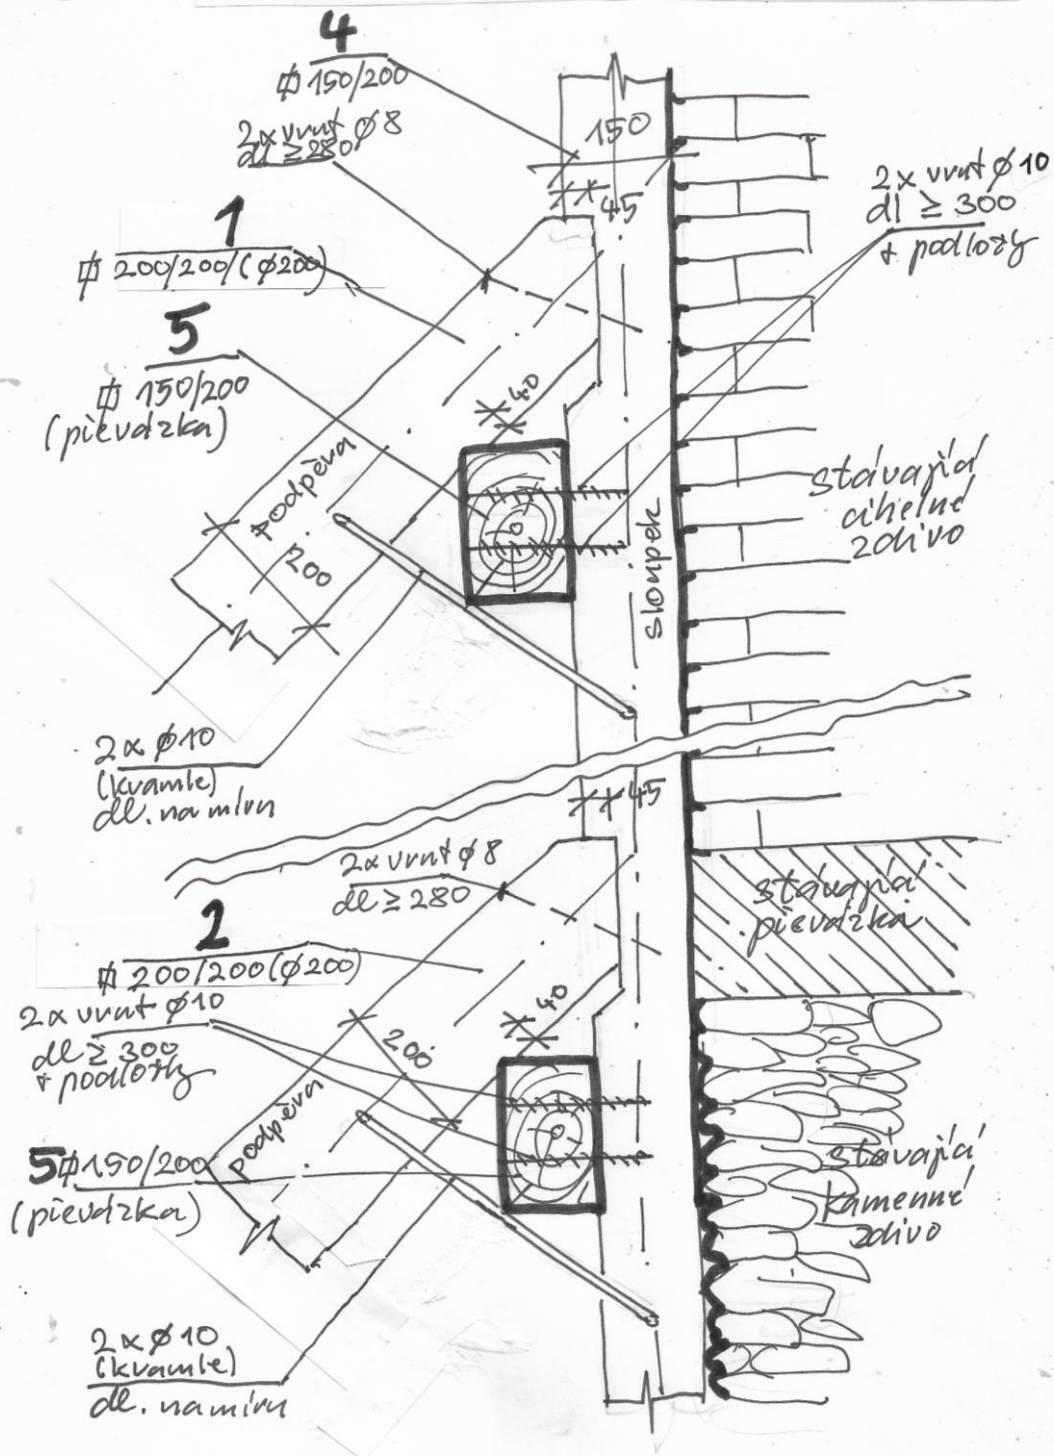 4
⌷ 150/200
2x vrut ϕ8
dl ≥ 280
150
45
2x vrut ϕ10
dl ≥ 300
+ podložky
1
⌷ 200/200/(ϕ200)
5
⌷ 150/200
(pievdzka)
40
podpěva
200
sloupek
stávající
cihelné
zdivo
2x ϕ10
(kvamle)
dl. na mírn
45
2x vrut ϕ8
dl ≥ 280
stávající
pievdzka
2
⌷ 200/200(ϕ200)
2x vrut ϕ10
dl ≥ 300
+ podložky
40
200
podpěva
5 ⌷ 150/200
(pievdzka)
stávající
kamenné
zdivo
2x ϕ10
(kvamle)
dl. na mírn